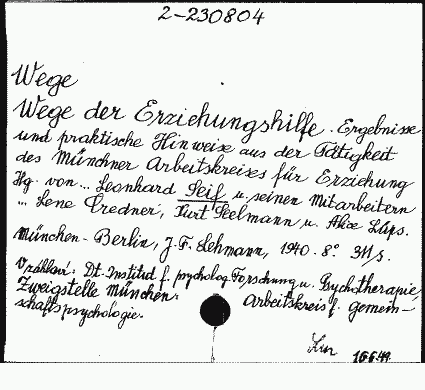 2-230804
Wege
Wege der Erziehungshilfe. Ergebnisse
und praktische Hinweise aus der Tätigkeit
des Münchner Arbeitskreises für Erziehung
Hg. von... Leonhard Seif u. seinen Mitarbeitern
... Lene Credner, Kurt Seelmann u. Alice Lüps.
München-Berlin, J. F. Lehmann, 1940. 8°. 341 s.
V záhlaví: Dt. Institut f. psycholog. Forschung u. Psychotherapie,
Zweigstelle München. Arbeitskreis f. Gemein-
schaftspsychologie.
16.6.49